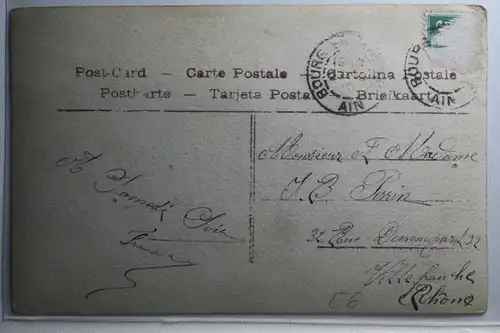 Post-Card – Carte Postale Cartolina Postale
Postkarte – Tarjeta Postal – Briefkaart
BOURG
AIN
BOURG
AIN
A Samedi Soir
Monsieur et Madame
J. B. Perrin
32 Rue 32
Villefranche
Rhône
E6